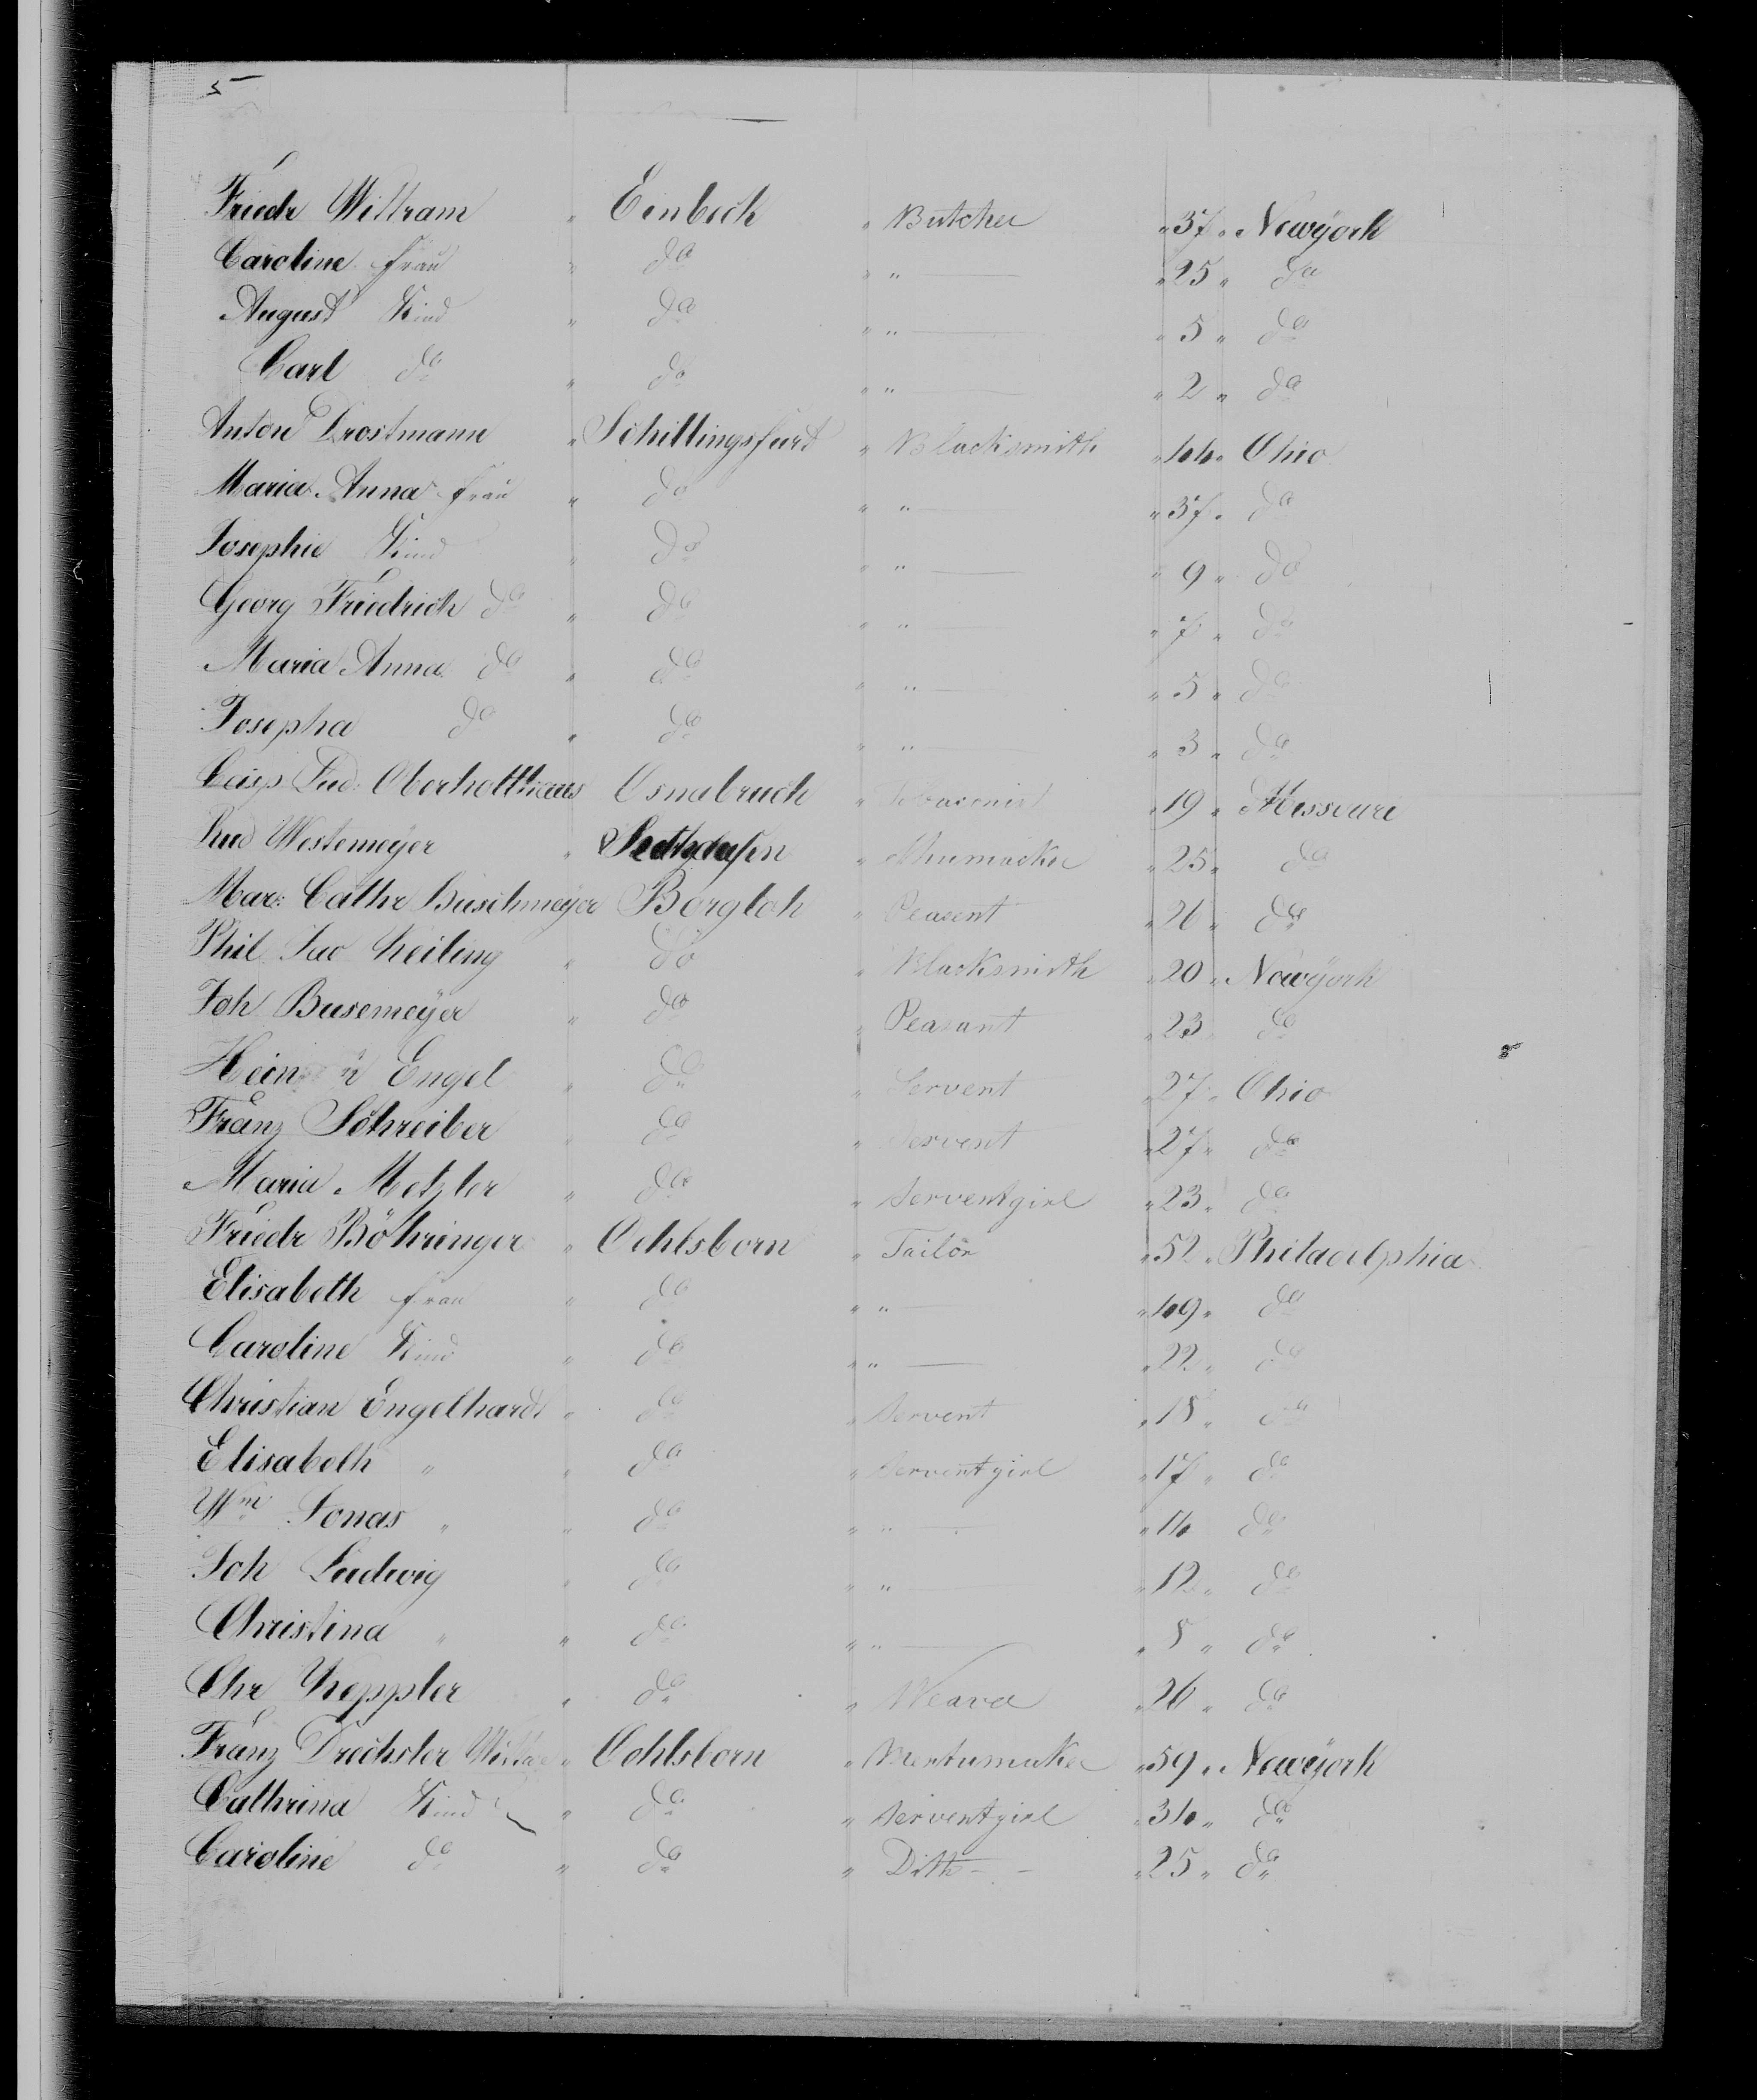 5
Friedr Wittram " Einbeck " Butcher " 37 " Newyork
Caroline frau " do " " — " 25 " do
August Kind " do " " — " 5 " do
Carl do " do " " — " 2 " do
Anton Drostmann " Schillingsfurt " Blacksmith " 44 " Ohio
Maria Anna frau " do " " — " 37 " do
Josephie Kind " do " " — " 9 " do
Georg Friedrich do " do " " — " 7 " do
Maria Anna do " do " " — " 5 " do
Josepha do " do " " — " 3 " do
Casp Lud: Oberholthaus Osnabruck " " 19 " Missouri
Lud Westemeyer " " Shumacker " 25 " do
Mar: Cathr Buschmeyer Borgloh " Peasent " 26 " do
Phil Lud Keiling " do " Blacksmith " 20 " Newyork
Joh Busemeyer " do " Peasant " 23 do
Hein Engel " do " Servent " 27 " Ohio
Franz Schreiber " do " Servent " 27 " do
Maria Metzler " do " Serventgirl " 23 " do
Friedr Böhringer " Oehlsborn " Tailor " 52 " Philadelphia
Elisabeth frau " do " " — " 49 " do
Caroline Kind " do " " — " 22 " do
Christian Engelhardt " do " Servent " 18 " do
Elisabeth " " do " Serventgirl " 17 " do
Wm Jonas " " do " " — " 14 do
Joh Ludwig " do " " — " 12 " do
Christina " " do " " — " 8 " do
Chr Keppler " do " Weaver " 26 " do
Franz Drechsler " Oehlsborn " " 59 " Newyork
Cathrina Kind " do " Serventgirl " 34 " do
Caroline do " do " Ditto - - " 25 " do